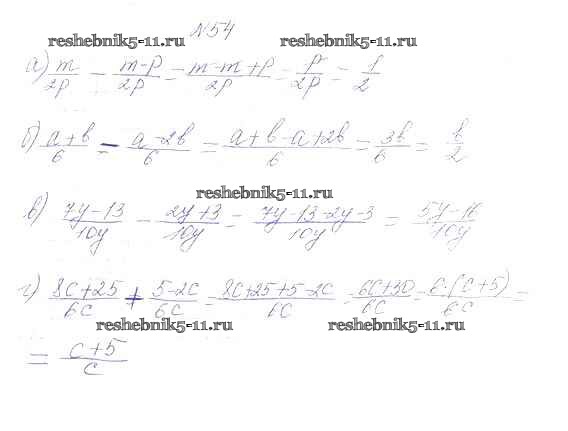 №54
reshebnik5-11.ru reshebnik5-11.ru
а) m/2p - m-p/2p = m-m+p/2p = p/2p = 1/2
б) a+b/6 - a-2b/6 = a+b-a+2b/6 = 3b/6 = b/2
reshebnik5-11.ru
в) 7y-13/10y - 2y+3/10y = 7y-13-2y-3/10y = 5y-16/10y
г) 8c+25/6c + 5-2c/6c = 8c+25+5-2c/6c = 6c+30/6c = 6·(c+5)/6·c =
reshebnik5-11.ru reshebnik5-11.ru
= c+5/c